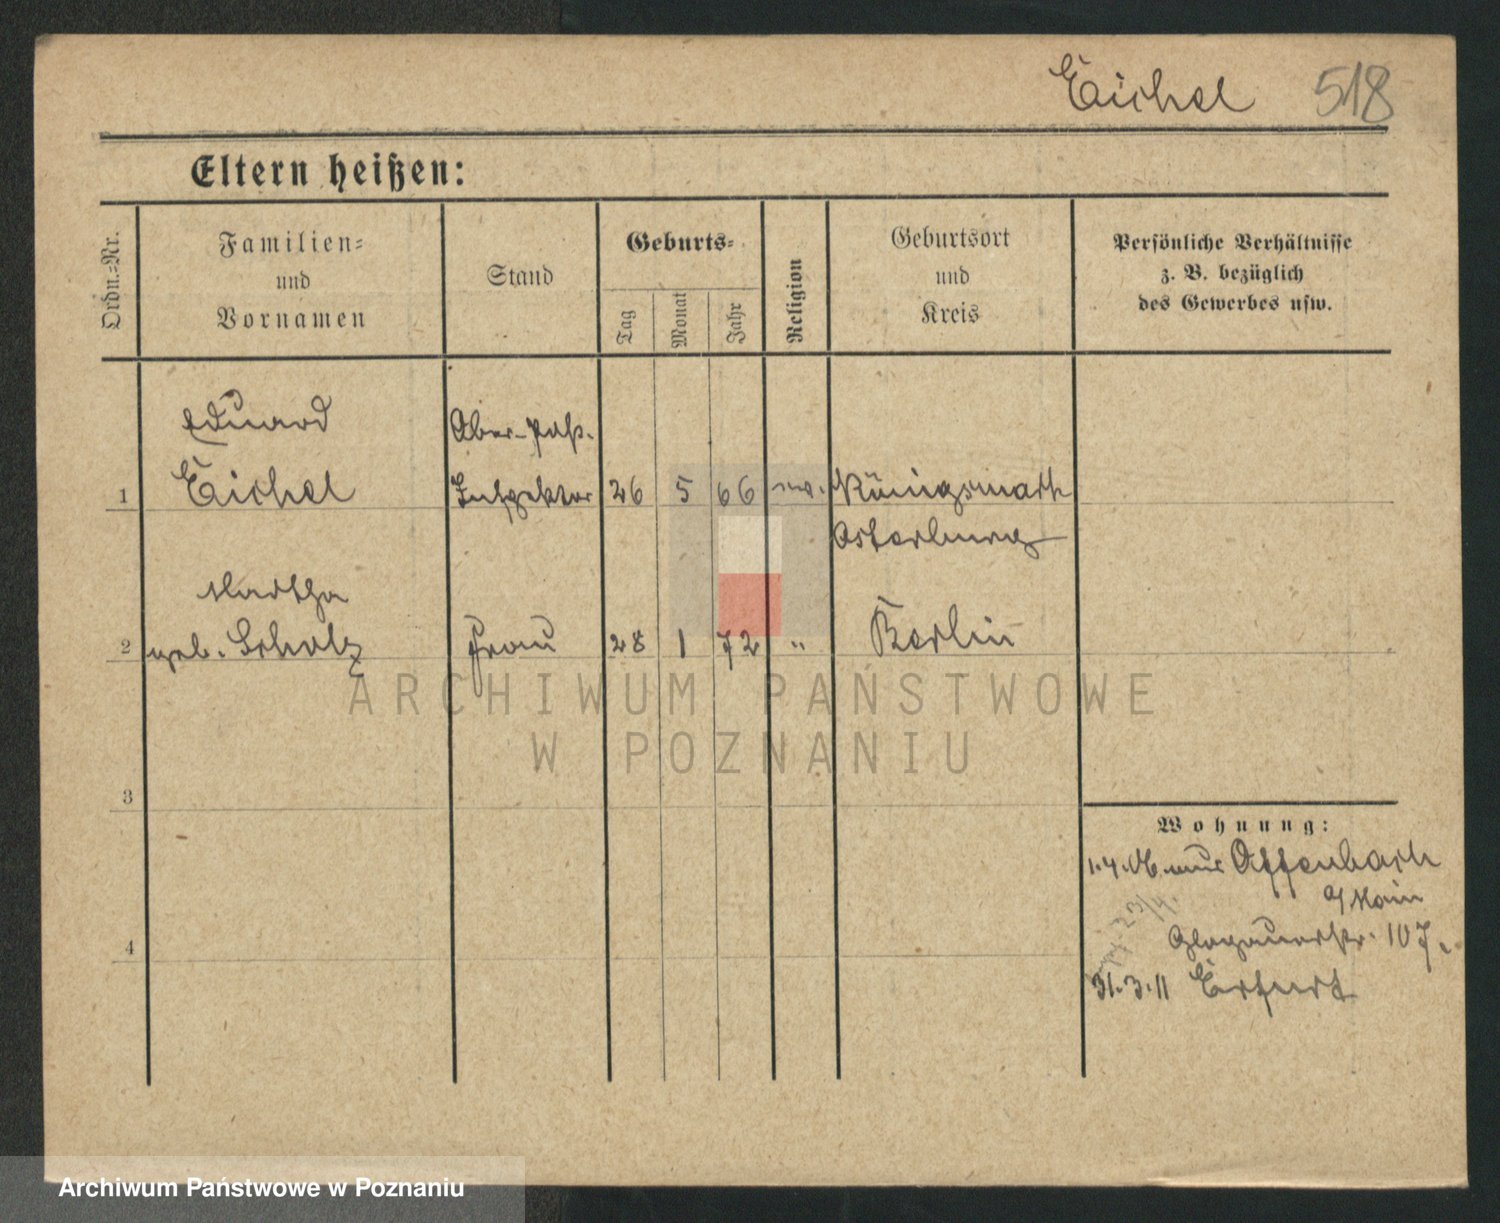 Eichel 518
Eltern heißen:
Ordn.=Nr.
Familien=
und
Vornamen
Stand
Geburts=
Tag
Monat
Jahr
Religion
Geburtsort
und
Kreis
Persönliche Verhältnisse
z. B. bezüglich
des Gewerbes usw.
Eduard Ober-Post-
1 Eichel Inspektor 26 5 66 ev. Königsmark
Osterburg
Martha
2 geb. Scholz Frau 28 1 72 " Berlin
3
4
Wohnung:
1.4.06. aus Offenbach
a/Main
Glogauerstr. 107.
31.3.11 Erfurt
ARCHIWUM PAŃSTWOWE
W POZNANIU
Archiwum Państwowe w Poznaniu